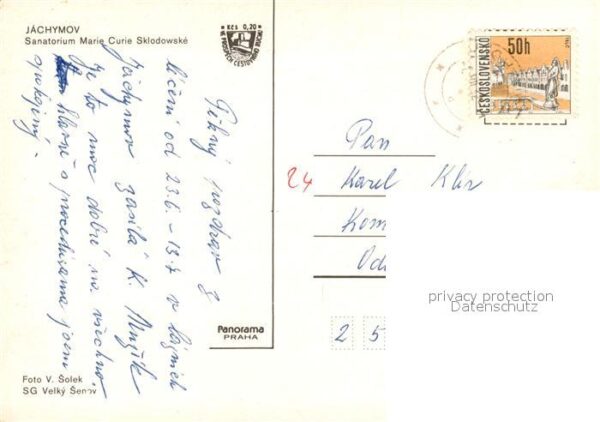 JÁCHYMOV
Sanatorium Marie Curie Sklodowské
Kčs 0,20
VE PROSPĚCH CESTOVNÍHO RUCHU
50h
ČESKOSLOVENSKO
Pěkný pozdrav z
léčení od 23.6. - 13.7 v lázních
Jáchymov zasílá K. Mužík
Je to moc dobré na všechno.
hlavně s procedurama jsem
spokojený.
Pan
24 Karel Klír
Kom
Od
2 5
Panorama
PRAHA
Foto V. Šolek
SG Velký Šenov
privacy protection
Datenschutz